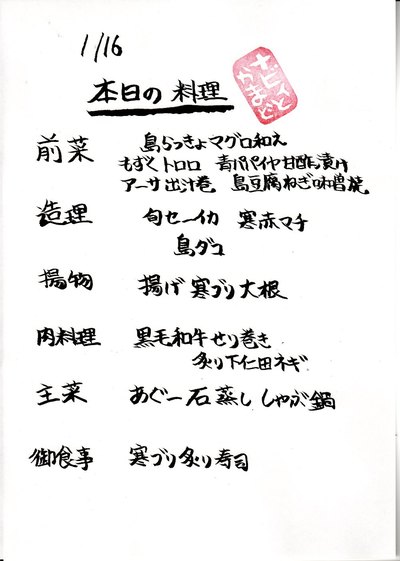 1/16
本日の料理
ナビィとかまど
前菜 島らっきょマグロ和え
もずくトロロ 青パパイヤ甘酢漬け
アーサ出汁巻 島豆腐ねぎ味噌焼
造理 旬セーイカ 寒赤マチ
島ダコ
揚物 揚げ寒ブリ大根
肉料理 黒毛和牛せり巻き
炙り下仁田ネギ
主菜 あぐー石蒸ししゃぶ鍋
御食事 寒ブリ炙り寿司